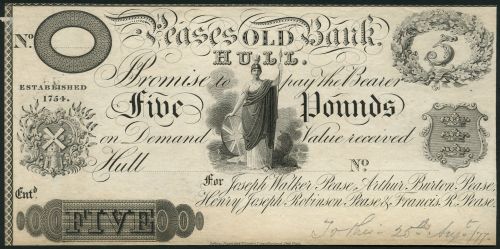 No. Peases OLD Bank, 5
HULL.
ESTABLISHED
1754.
Promise to pay the Bearer
Five Pounds
on Demand Value received
Hull No
For Joseph Walker Pease, Arthur Burton Pease,
Entd Henry Joseph Robinson Pease & Francis R. Pease.
FIVE